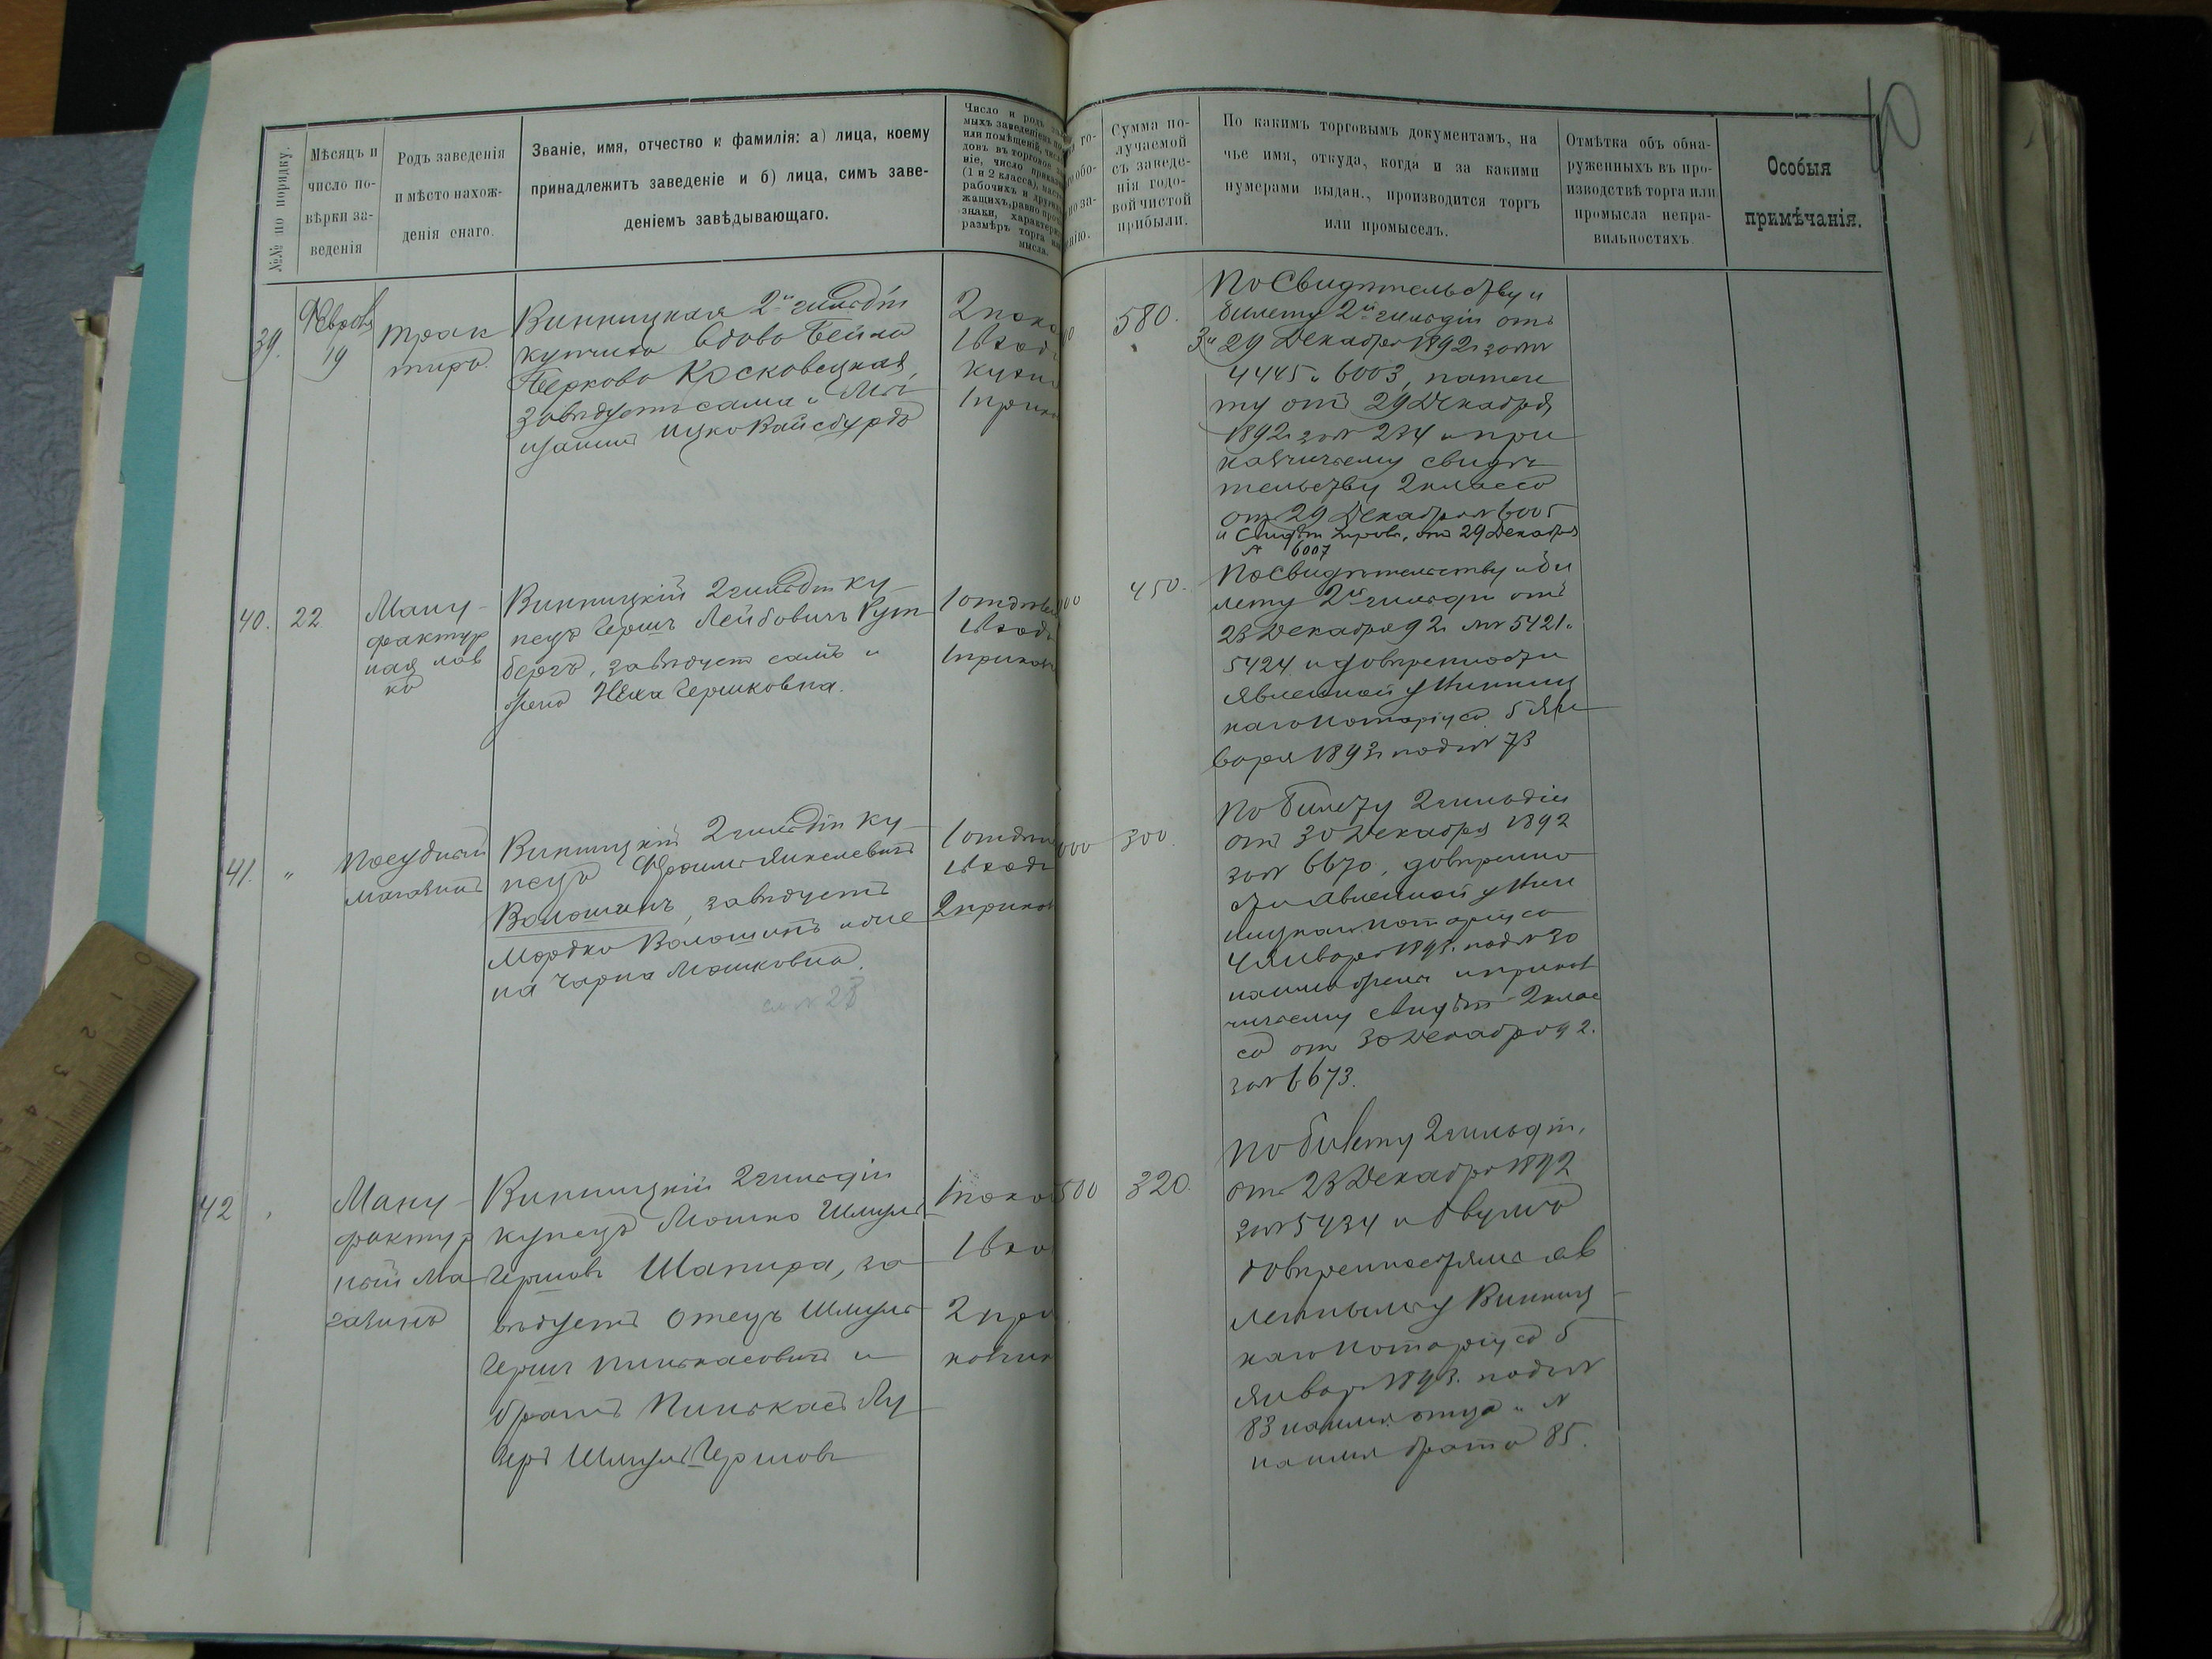 №№ по порядку.
Мѣсяцъ и
число по-
вѣрки за-
веденія
Родъ заведенія
и мѣсто нахож-
денія онаго.
Званіе, имя, отчество и фамилія: а) лица, коему
принадлежитъ заведеніе и б) лица, симъ заве-
деніемъ завѣдывающаго.
Число и родъ
мыхъ заведеніемъ
или помѣщеній, число
довъ въ торговое
ніе, число приказ
(1 и 2 класса),
рабочихъ и
жащихъ, равно
знаки,
размѣръ торга
мысла.
го-
обо-
по за-
нію.
Сумма по-
лучаемой
съ заведе-
нія годо-
вой чистой
прибыли.
По какимъ торговымъ документамъ, на
чье имя, откуда, когда и за какими
нумерами выдан., производится торгъ
или промыселъ.
Отмѣтка объ обна-
руженныхъ въ про-
изводствѣ торга или
промысла непра-
вильностяхъ.
Особыя
примѣчанія.
39.
19
Трак
тиръ.
Винницкая 2й гильдіи
купчиха вдова Бейла
Беркова Красковецкая,
завѣдуетъ сама и
Ицко Вайсбурдъ
2 поко
1 входъ
кухня
1 прика
580.
По свидѣтельству и
билету 2й гильдіи отъ
29 Декабря 1892 г. за №№
4445 и 6003, патен
ту отъ 29 Декабря
1892 г. за № 234 и при
кащичьему свидѣ
тельству 2 класса
отъ 29 Декабря № 6005
отъ 29 Декабря
№ 6007
40.
22
Ману-
фактур
ная лав
ка
Винницкій 2 гильдіи ку-
пецъ Гершъ Лейбовичъ Рут
бергъ, завѣдуетъ самъ и
жена Нѣха Гершковна.
1 отдѣл
1 входъ
1 приказ
00
450.
По свидѣтельству и би
лету 2й гильдіи отъ
23 Декабря 92 г. №№ 5421 и
5424 и довѣренности
явленной у Винниц
каго Нотаріуса 5 Ян
варя 1893 г. подъ № 73
41.
"
Посудный
магазинъ
Винницкій 2 гильдіи ку-
пецъ Фроимъ Янкелевичъ
Волошинъ, завѣдуетъ
Мордко Волошинъ и же
на Чарна Мошковна.
см № 28
1 отдѣл
1 входъ
2 приказ
000
300.
По билету 2 гильдіи
отъ 30 Декабря 1892
за № 6670, довѣренно
сти явленной у Вин
ницкаго нотаріуса
4 Января 1893 г. подъ № 30
на имя жены и приказ
чичьему свидѣт. 2 клас
са отъ 30 Декабря 92.
за № 6673.
42
"
Ману-
фактур
ный ма
газинъ
Винницкій 2 гильдіи
купецъ Мошко Шмуль-
Гершовъ Шапира, за
вѣдуетъ отецъ Шмуль
Гершъ Пинькасовичъ и
братъ Пинькасъ Лу-
зеръ Шмуль-Гершовъ
1 поко
1 вхо
2 при
кащик
500
320.
По билету 2 гильдіи,
отъ 23 Декабря 1892
за № 5434 и двумъ
довѣренностямъ яв
леннымъ у Винниц-
каго Нотаріуса 5
Января 1893 г. подъ №
83 на имя отца и №
на имя брата 85.